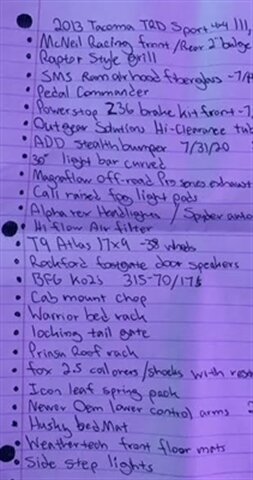 2013 Tacoma TRD Sport 4x4 111,
• McNeil Racing front/Rear 2" bulge
• Raptor Style grill
• SMS Ram air hood fiberglass -7/
• Pedal Commander
• Powerstop Z36 brake kit front -7
• Outgear Solutions Hi-Clearance
• ADD stealth bumper 7/31/20
• 30" light bar curved
• Magnaflow Off-road Pro series exhaust
• Cali raised fog light pods
• Alpharex Headlights / Spyder
• Hi flow Air filter
• T9 Atlas 17x9 -38 wheels
• Rockford fostgate door speakers
• BFG Ko2s 315-70/17s
• Cab mount chop
• Warrior bed rack
• locking tail gate
• Prinsu Roof rack
• fox 2.5 calovers/shocks with
• Icon leaf spring pack
• Newer Oem lower control arms
• Husky bed Mat
• Weathertech front floor mats
• Side step lights